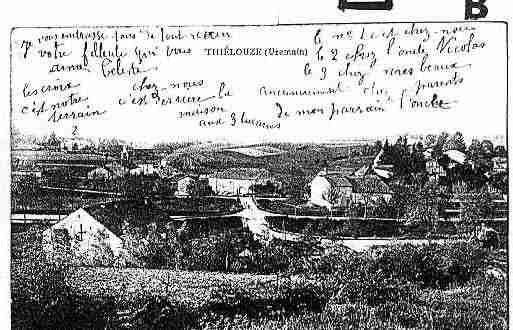 B
je vous embrasse tous de tout cœur
votre filleule qui vous
aime Celeste
THIÉLOUZE (Uxemain)
le n° 1 est chez-nous
le 2 chez l'oncle Nicolas
le 3 chez nos beaux
parents
les croix
c'est notre
terrain
chez-nous
c'est derriere la
maison
aux 3
anciennement chez
de mon parrain l'oncle
2